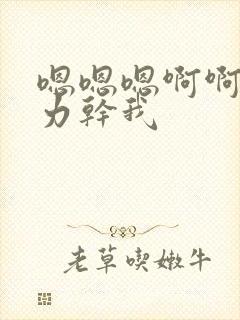 嗯嗯嗯啊啊
力幹我
老草喫嫩牛